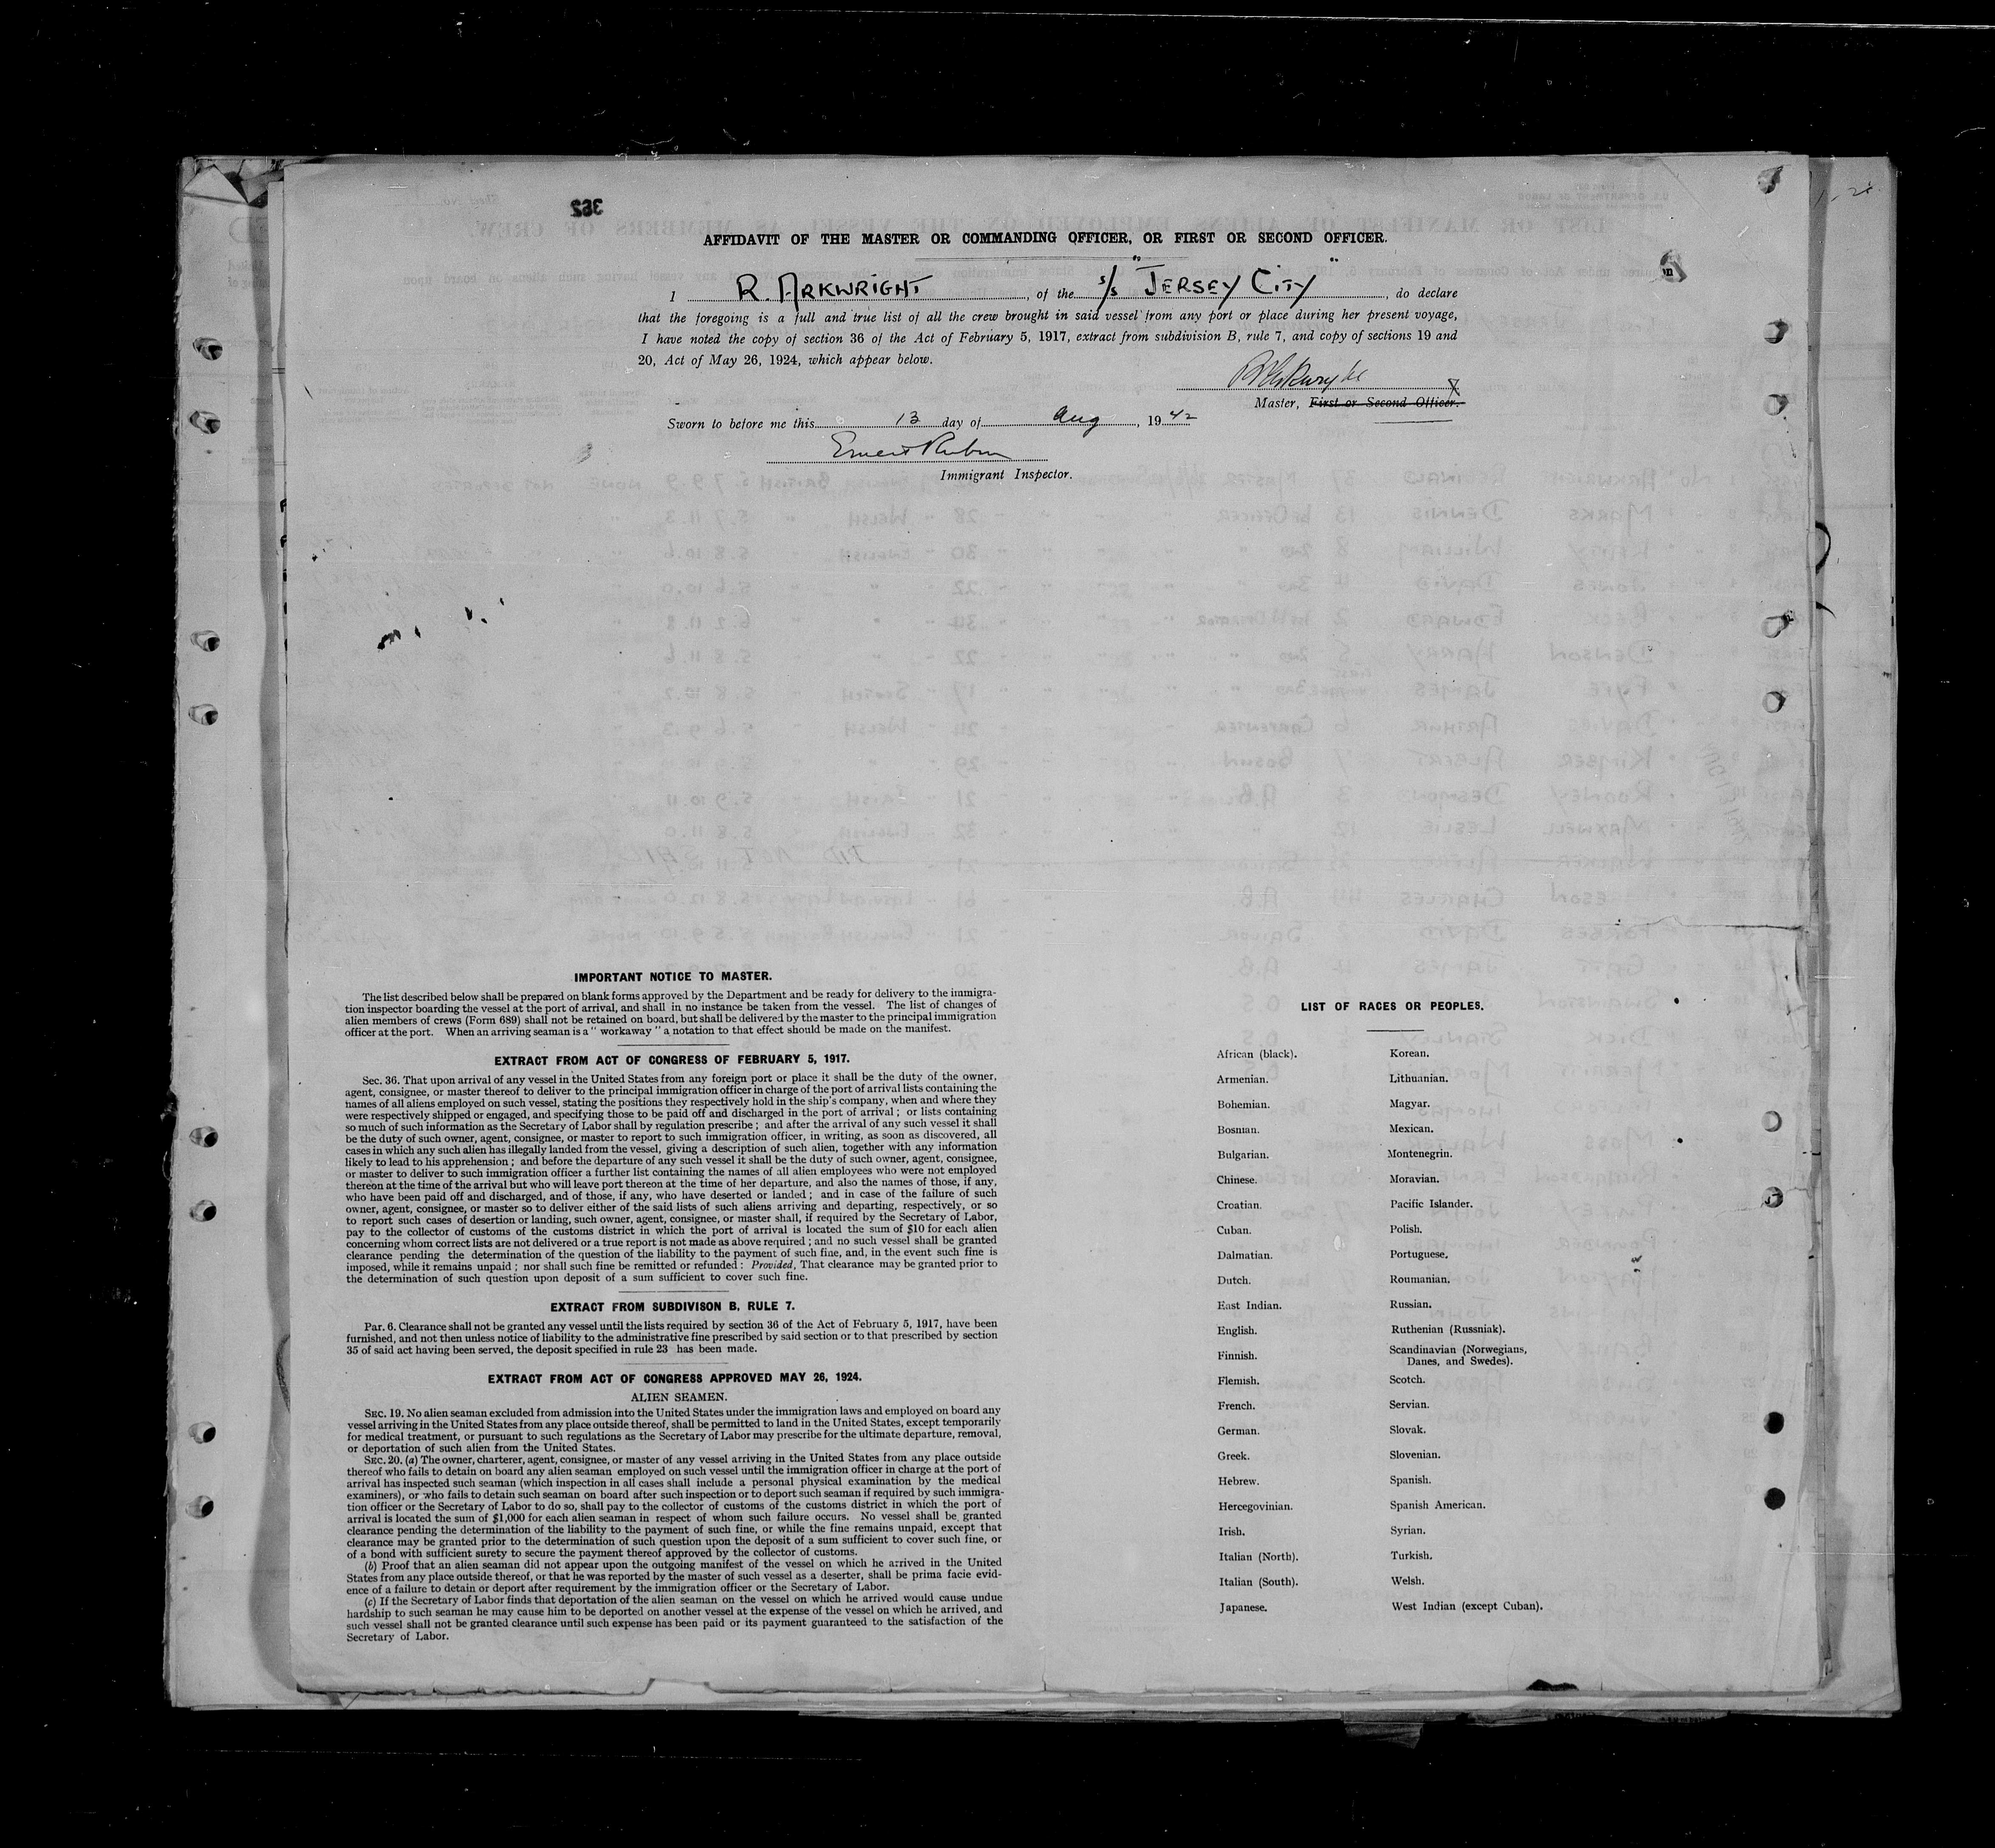 362
AFFIDAVIT OF THE MASTER OR COMMANDING OFFICER, OR FIRST OR SECOND OFFICER.
I R. ARKWRIGHT, of the s/s "JERSEY CITY", do declare
that the foregoing is a full and true list of all the crew brought in said vessel from any port or place during her present voyage,
I have noted the copy of section 36 of the Act of February 5, 1917, extract from subdivision B, rule 7, and copy of sections 19 and
20, Act of May 26, 1924, which appear below.
R Arkwright
Master, First or Second Officer.
Sworn to before me this 13 day of Aug, 1942
Ernest Rubin
Immigrant Inspector.
IMPORTANT NOTICE TO MASTER.
The list described below shall be prepared on blank forms approved by the Department and be ready for delivery to the immigra-
tion inspector boarding the vessel at the port of arrival, and shall in no instance be taken from the vessel. The list of changes of
alien members of crews (Form 689) shall not be retained on board, but shall be delivered by the master to the principal immigration
officer at the port. When an arriving seaman is a " workaway " a notation to that effect should be made on the manifest.
EXTRACT FROM ACT OF CONGRESS OF FEBRUARY 5, 1917.
Sec. 36. That upon arrival of any vessel in the United States from any foreign port or place it shall be the duty of the owner,
agent, consignee, or master thereof to deliver to the principal immigration officer in charge of the port of arrival lists containing the
names of all aliens employed on such vessel, stating the positions they respectively hold in the ship's company, when and where they
were respectively shipped or engaged, and specifying those to be paid off and discharged in the port of arrival ; or lists containing
so much of such information as the Secretary of Labor shall by regulation prescribe ; and after the arrival of any such vessel it shall
be the duty of such owner, agent, consignee, or master to report to such immigration officer, in writing, as soon as discovered, all
cases in which any such alien has illegally landed from the vessel, giving a description of such alien, together with any information
likely to lead to his apprehension ; and before the departure of any such vessel it shall be the duty of such owner, agent, consignee,
or master to deliver to such immigration officer a further list containing the names of all alien employees who were not employed
thereon at the time of the arrival but who will leave port thereon at the time of her departure, and also the names of those, if any,
who have been paid off and discharged, and of those, if any, who have deserted or landed ; and in case of the failure of such
owner, agent, consignee, or master so to deliver either of the said lists of such aliens arriving and departing, respectively, or so
to report such cases of desertion or landing, such owner, agent, consignee, or master shall, if required by the Secretary of Labor,
pay to the collector of customs of the customs district in which the port of arrival is located the sum of $10 for each alien
concerning whom correct lists are not delivered or a true report is not made as above required ; and no such vessel shall be granted
clearance pending the determination of the question of the liability to the payment of such fine, and, in the event such fine is
imposed, while it remains unpaid ; nor shall such fine be remitted or refunded : Provided, That clearance may be granted prior to
the determination of such question upon deposit of a sum sufficient to cover such fine.
EXTRACT FROM SUBDIVISON B, RULE 7.
Par. 6. Clearance shall not be granted any vessel until the lists required by section 36 of the Act of February 5, 1917, have been
furnished, and not then unless notice of liability to the administrative fine prescribed by said section or to that prescribed by section
35 of said act having been served, the deposit specified in rule 23 has been made.
EXTRACT FROM ACT OF CONGRESS APPROVED MAY 26, 1924.
ALIEN SEAMEN.
SEC. 19. No alien seaman excluded from admission into the United States under the immigration laws and employed on board any
vessel arriving in the United States from any place outside thereof, shall be permitted to land in the United States, except temporarily
for medical treatment, or pursuant to such regulations as the Secretary of Labor may prescribe for the ultimate departure, removal,
or deportation of such alien from the United States.
SEC. 20. (a) The owner, charterer, agent, consignee, or master of any vessel arriving in the United States from any place outside
thereof who fails to detain on board any alien seaman employed on such vessel until the immigration officer in charge at the port of
arrival has inspected such seaman (which inspection in all cases shall include a personal physical examination by the medical
examiners), or who fails to detain such seaman on board after such inspection or to deport such seaman if required by such immigra-
tion officer or the Secretary of Labor to do so, shall pay to the collector of customs of the customs district in which the port of
arrival is located the sum of $1,000 for each alien seaman in respect of whom such failure occurs. No vessel shall be granted
clearance pending the determination of the liability to the payment of such fine, or while the fine remains unpaid, except that
clearance may be granted prior to the determination of such question upon the deposit of a sum sufficient to cover such fine, or
of a bond with sufficient surety to secure the payment thereof approved by the collector of customs.
(b) Proof that an alien seaman did not appear upon the outgoing manifest of the vessel on which he arrived in the United
States from any place outside thereof, or that he was reported by the master of such vessel as a deserter, shall be prima facie evid-
ence of a failure to detain or deport after requirement by the immigration officer or the Secretary of Labor.
(c) If the Secretary of Labor finds that deportation of the alien seaman on the vessel on which he arrived would cause undue
hardship to such seaman he may cause him to be deported on another vessel at the expense of the vessel on which he arrived, and
such vessel shall not be granted clearance until such expense has been paid or its payment guaranteed to the satisfaction of the
Secretary of Labor.
LIST OF RACES OR PEOPLES.
African (black).
Armenian.
Bohemian.
Bosnian.
Bulgarian.
Chinese.
Croatian.
Cuban.
Dalmatian.
Dutch.
East Indian.
English.
Finnish.
Flemish.
French.
German.
Greek.
Hebrew.
Hercegovinian.
Irish.
Italian (North).
Italian (South).
Japanese.
Korean.
Lithuanian.
Magyar.
Mexican.
Montenegrin.
Moravian.
Pacific Islander.
Polish.
Portuguese.
Roumanian.
Russian.
Ruthenian (Russniak).
Scandinavian (Norwegians,
Danes, and Swedes).
Scotch.
Servian.
Slovak.
Slovenian.
Spanish.
Spanish American.
Syrian.
Turkish.
Welsh.
West Indian (except Cuban).